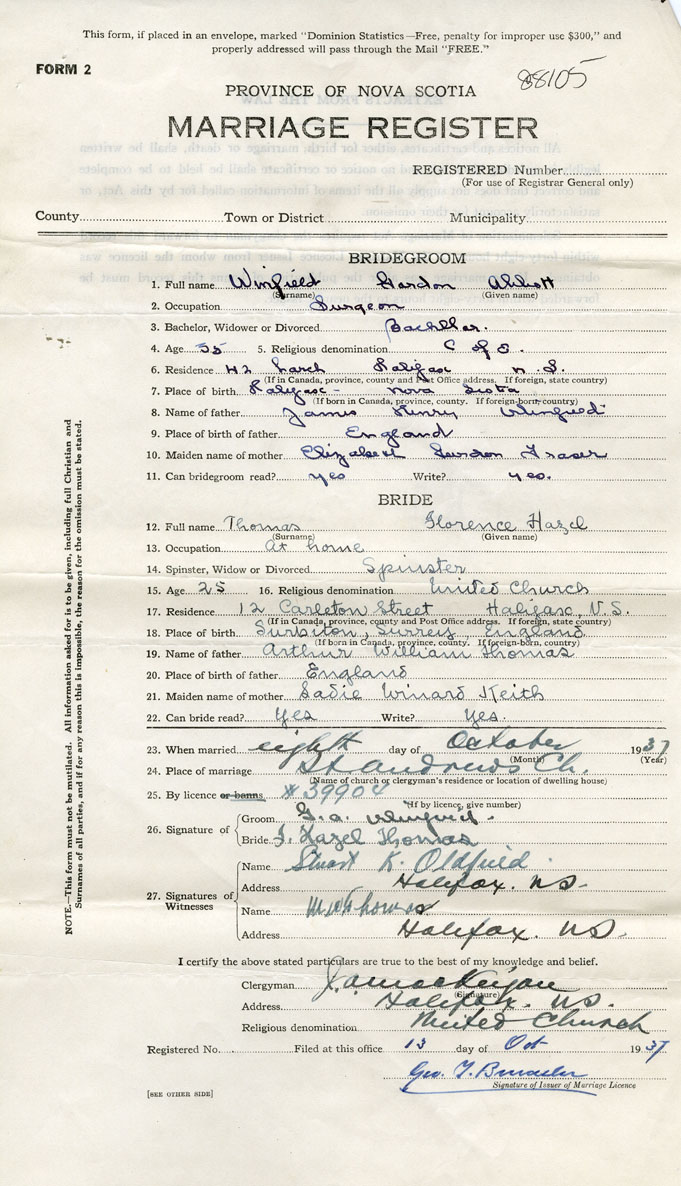 This form, if placed in an envelope, marked "Dominion Statistics—Free, penalty for improper use $300," and
properly addressed will pass through the Mail "FREE."
FORM 2
88105
PROVINCE OF NOVA SCOTIA
MARRIAGE REGISTER
REGISTERED Number
(For use of Registrar General only)
County Town or District Municipality
BRIDEGROOM
1. Full name Winfield Gordon
(Surname) (Given name)
2. Occupation Surgeon
3. Bachelor, Widower or Divorced
4. Age 35 5. Religious denomination C of E.
6. Residence 42 Larch Halifax N.S.
(If in Canada, province, county and Post Office address. If foreign, state country)
7. Place of birth Halifax - Nova Scotia
(If born in Canada, province, county. If foreign-born country)
8. Name of father James Henry Winfield
9. Place of birth of father England
10. Maiden name of mother Elizabeth Fraser
11. Can bridegroom read? yes Write? yes.
BRIDE
12. Full name Thomas Florence Hazel
(Surname) (Given name)
13. Occupation At home
14. Spinster, Widow or Divorced Spinster
15. Age 25 16. Religious denomination United Church
17. Residence 12 Carleton Street Halifax, N.S.
(If in Canada, province, county and Post Office address. If foreign, state country)
18. Place of birth Surbiton, Surrey England
(If born in Canada, province, county. If foreign-born, country)
19. Name of father Arthur William Thomas
20. Place of birth of father England
21. Maiden name of mother Sadie Winard Keith
22. Can bride read? Yes Write? Yes.
23. When married eighth day of October 1937
(Month) (Year)
24. Place of marriage St Andrews Ch.
(Name of church or clergyman's residence or location of dwelling house)
25. By licence or banns # 39904
(If by licence, give number)
26. Signature of
Groom G.A. Winfield.
Bride F. Hazel Thomas
27. Signatures of Witnesses
Name Stuart K. Oldfield.
Address Halifax. NS.
Name
Address Halifax. NS.
I certify the above stated particulars are true to the best of my knowledge and belief.
Clergyman
(Signature)
Address Halifax. NS.
Religious denomination United Church
Registered No. Filed at this office 13 day of Oct 1937
Geo. T.
Signature of Issuer of Marriage Licence
[SEE OTHER SIDE]
NOTE.—This form must not be mutilated. All information asked for is to be given, including full Christian and
Surnames of all parties, and if for any reason this is impossible, the reason for the omission must be stated.